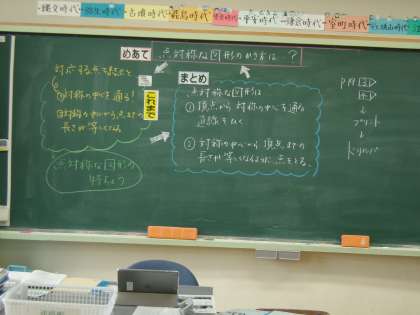 縄文時代 弥生時代 古墳時代 飛鳥時代 奈良時代 平安時代 鎌倉時代 室町時代
めあて 点対称な図形のかき方は…?
対応する点を結ぶと
①対称の中心を通る!
②対称の中心から点までの
長さが等しくなる
これまで
点対称な図形の
特ちょう
まとめ
点対称な図形は
①頂点から対称の中心を通る
直線をひく
②対称の中心から頂点までの
長さが等しくなるように点をとる。
↓
プリント
↓
ドリルパ